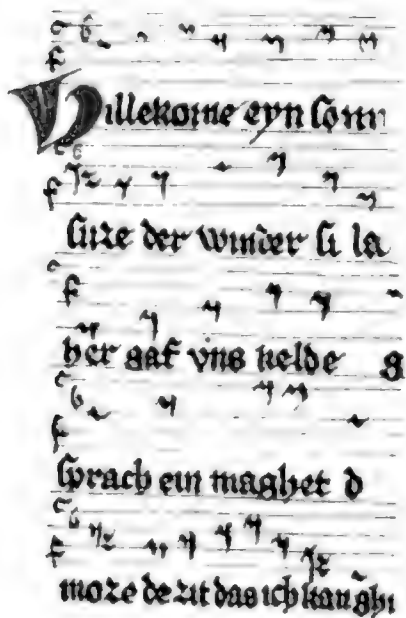 Willekome eyn som
suze der winder si la
her gaf vns kelde g
sprach ein maghet d
moze de zit das ich kan ghi